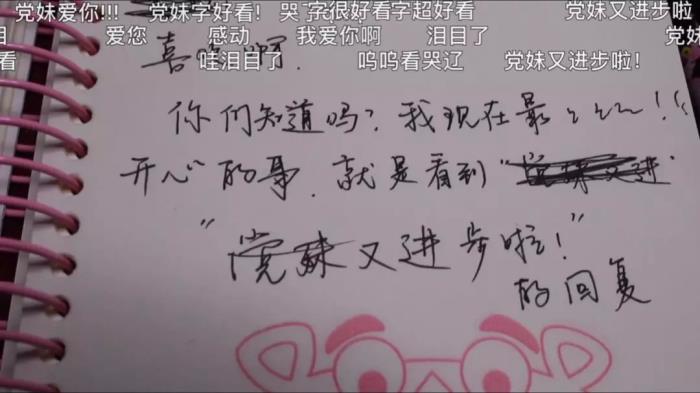 党妹爱你!!! 党妹字好看! 哭了 字很好看字超好看 党妹又进步啦!
爱您 感动 我爱你啊 泪目了 党妹
看 哇泪目了 呜呜看哭辽 党妹又进步啦!
喜
你们知道吗?我现在最~~~!!
开心”的事,就是看到“
“党妹又进步啦!”
的回复